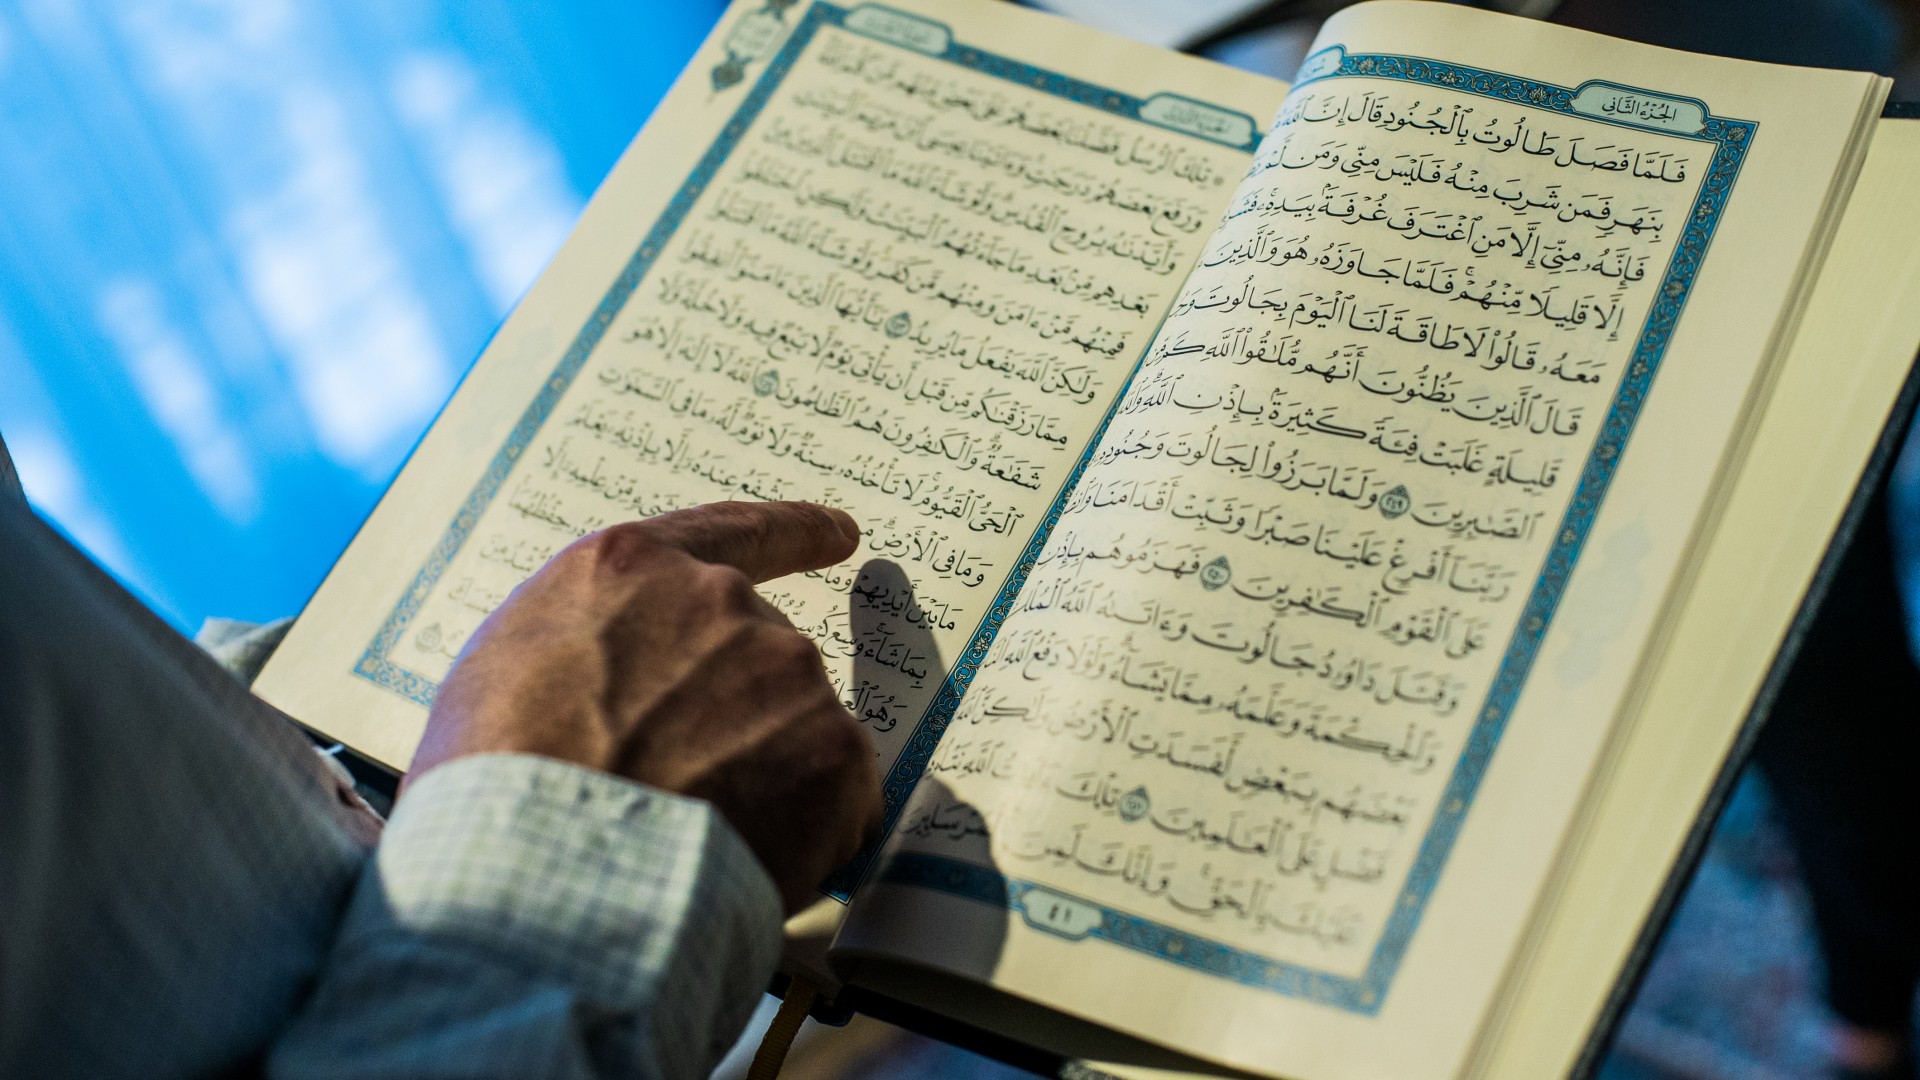 الجُزْءُ الثَّانِي
فَلَمَّا فَصَلَ طَالُوتُ بِٱلْجُنُودِ قَالَ إِنَّ ٱللَّهَ
بِنَهَرٍ فَمَن شَرِبَ مِنْهُ فَلَيْسَ مِنِّى وَمَن لَّمْ
فَإِنَّهُۥ مِنِّىٓ إِلَّا مَنِ ٱغْتَرَفَ غُرْفَةًۢ بِيَدِهِۦۚ
إِلَّا قَلِيلًا مِّنْهُمْۚ فَلَمَّا جَاوَزَهُۥ هُوَ وَٱلَّذِينَ
مَعَهُۥ قَالُوا۟ لَا طَاقَةَ لَنَا ٱلْيَوْمَ بِجَالُوتَ
قَالَ ٱلَّذِينَ يَظُنُّونَ أَنَّهُم مُّلَٰقُوا۟ ٱللَّهِ كَم مِّن
قَلِيلَةٍ غَلَبَتْ فِئَةً كَثِيرَةًۢ بِإِذْنِ ٱللَّهِۗ وَٱللَّهُ
ٱلصَّٰبِرِينَ ٢٤٩ وَلَمَّا بَرَزُوا۟ لِجَالُوتَ وَجُنُودِهِۦ
رَبَّنَآ أَفْرِغْ عَلَيْنَا صَبْرًا وَثَبِّتْ أَقْدَامَنَا
عَلَى ٱلْقَوْمِ ٱلْكَٰفِرِينَ ٢٥٠ فَهَزَمُوهُم بِإِذْنِ
وَقَتَلَ دَاوُۥدُ جَالُوتَ وَءَاتَىٰهُ ٱللَّهُ ٱلْمُلْكَ
وَٱلْحِكْمَةَ وَعَلَّمَهُۥ مِمَّا يَشَآءُۗ وَلَوْلَا دَفْعُ ٱللَّهِ
بَعْضَهُم بِبَعْضٍ لَّفَسَدَتِ ٱلْأَرْضُ وَلَٰكِنَّ ٱللَّهَ
فَضْلٍ عَلَى ٱلْعَٰلَمِينَ ٢٥١ تِلْكَ ءَايَٰتُ ٱللَّهِ
عَلَيْكَ بِٱلْحَقِّۚ وَإِنَّكَ لَمِنَ ٱلْمُرْسَلِينَ
٤١
تِلْكَ ٱلرُّسُلُ فَضَّلْنَا بَعْضَهُمْ عَلَىٰ بَعْضٍۘ مِّنْهُم مَّن كَلَّمَ ٱللَّهُۖ
وَرَفَعَ بَعْضَهُمْ دَرَجَٰتٍۚ وَءَاتَيْنَا عِيسَى ٱبْنَ مَرْيَمَ ٱلْبَيِّنَٰتِ
وَأَيَّدْنَٰهُ بِرُوحِ ٱلْقُدُسِۗ وَلَوْ شَآءَ ٱللَّهُ مَا ٱقْتَتَلَ ٱلَّذِينَ مِنۢ
بَعْدِهِم مِّنۢ بَعْدِ مَا جَآءَتْهُمُ ٱلْبَيِّنَٰتُ وَلَٰكِنِ ٱخْتَلَفُوا۟
فَمِنْهُم مَّنْ ءَامَنَ وَمِنْهُم مَّن كَفَرَۚ وَلَوْ شَآءَ ٱللَّهُ مَا ٱقْتَتَلُوا۟
وَلَٰكِنَّ ٱللَّهَ يَفْعَلُ مَا يُرِيدُ ٢٥٣ يَٰٓأَيُّهَا ٱلَّذِينَ ءَامَنُوٓا۟ أَنفِقُوا۟
مِمَّا رَزَقْنَٰكُم مِّن قَبْلِ أَن يَأْتِىَ يَوْمٌ لَّا بَيْعٌ فِيهِ وَلَا خُلَّةٌ وَلَا
شَفَٰعَةٌۗ وَٱلْكَٰفِرُونَ هُمُ ٱلظَّٰلِمُونَ ٢٥٤ ٱللَّهُ لَآ إِلَٰهَ إِلَّا هُوَ
ٱلْحَىُّ ٱلْقَيُّومُۚ لَا تَأْخُذُهُۥ سِنَةٌ وَلَا نَوْمٌۚ لَّهُۥ مَا فِى ٱلسَّمَٰوَٰتِ
وَمَا فِى ٱلْأَرْضِۗ مَن يَشْفَعُ عِندَهُۥٓ إِلَّا بِإِذْنِهِۦۚ يَعْلَمُ
مَا بَيْنَ أَيْدِيهِمْ وَمَا بِشَىْءٍ مِّنْ عِلْمِهِۦٓ إِلَّا
بِمَا شَآءَۚ وَسِعَ كُرْسِيُّهُ حِفْظُهُمَا
وَهُوَ ٱلْعَلِىُّ